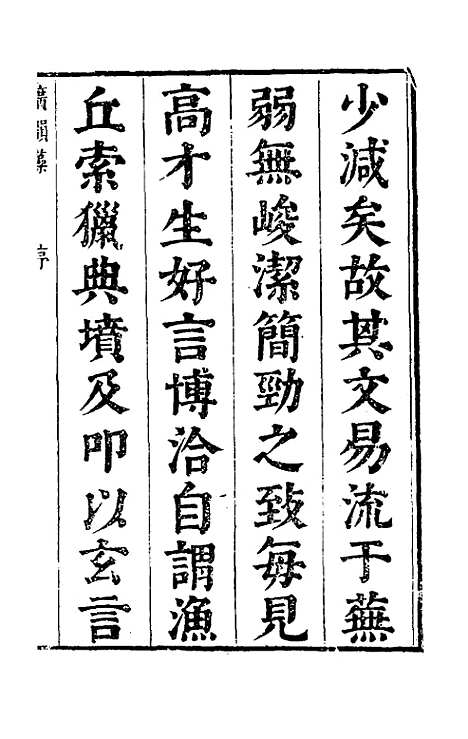 少減矣故其文易流于蕪
弱無峻潔簡勁之致每見
高才生好言博洽自謂漁
丘索獵典墳及叩以玄言
廣韻藻 序